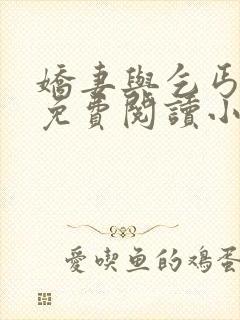 嬌妻與乞丐
免費閱讀小
愛喫魚的鸡蛋